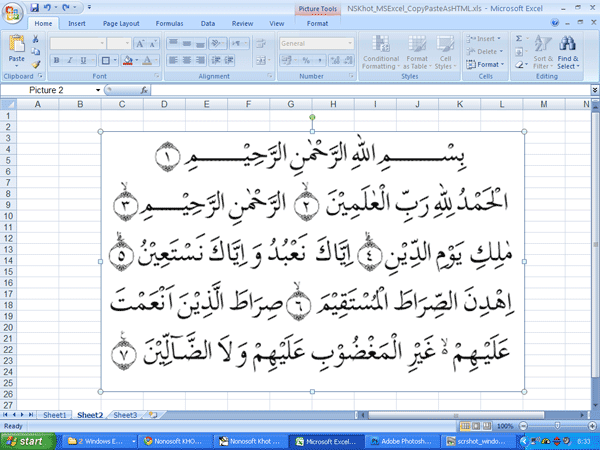 Picture Tools
NSKhot_MSExcel_CopyPasteAsHTML.xls - Microsoft Excel
Home Insert Page Layout Formulas Data Review View Format
Paste
Conditional Formatting Format as Table Cell Styles
General
Insert Delete Format
Sort & Filter Find & Select
Clipboard Font Alignment Number Styles Cells Editing
Picture 2 fx
A B C D E F G H I J K L M N
1
2
3
4
5
6
7
8
9
10
11
12
13
14
15
16
17
18
19
20
21
22
23
24
25
26
27
بِسْـــــــمِ اللهِ الرَّحْمٰنِ الرَّحِيْـــــــمِ ۝١
الْحَمْدُ لِلّٰهِ رَبِّ الْعٰلَمِيْنَ ۝٢ الرَّحْمٰنِ الرَّحِيْـــــمِ ۝٣
مٰلِكِ يَوْمِ الدِّيْنِ ۝٤ اِيَّاكَ نَعْبُدُ وَ اِيَّاكَ نَسْتَعِيْنُ ۝٥
اِهْدِنَ الصِّرَاطَ الْمُسْتَقِيْمَ ۝٦ صِرَاطَ الَّذِيْنَ اَنْعَمْتَ
عَلَيْهِمْ ۙ غَيْرِ الْمَغْضُوْبِ عَلَيْهِمْ وَ لَا الضَّآلِّيْنَ ۝٧
Sheet1 Sheet2 Sheet3
Ready 100%
start 2 Windows E... Nonosoft KHO... Nonosoft Khot ... Microsoft Exce... Adobe Photosh... scrshot_windo... 8:33